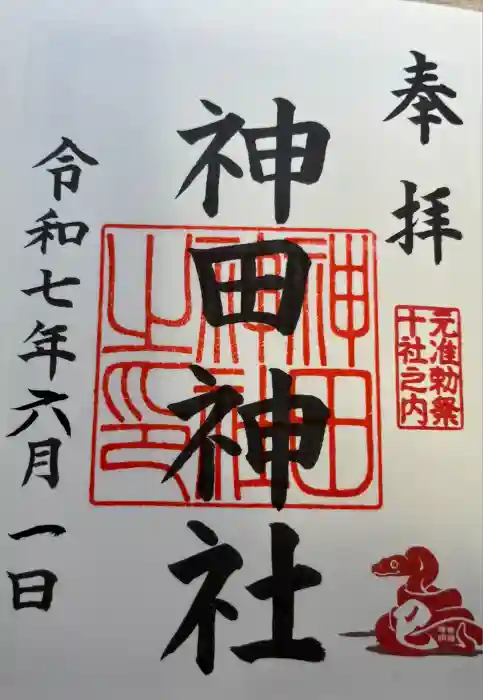 奉拝
元准勅祭
十社之内
巳
神田神社
神田神社之印
令和七年六月一日